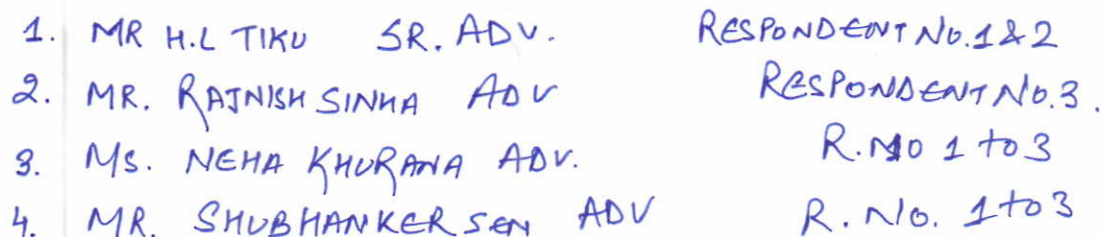 1. MR H.L TIKU SR. ADV. RESPONDENT NO.1&2
2. MR. RAJNISH SINHA ADV RESPONDENT NO.3.
3. MS. NEHA KHURANA ADV. R.NO 1 to 3
4. MR. SHUBHANKER SEN ADV R. No. 1 to 3